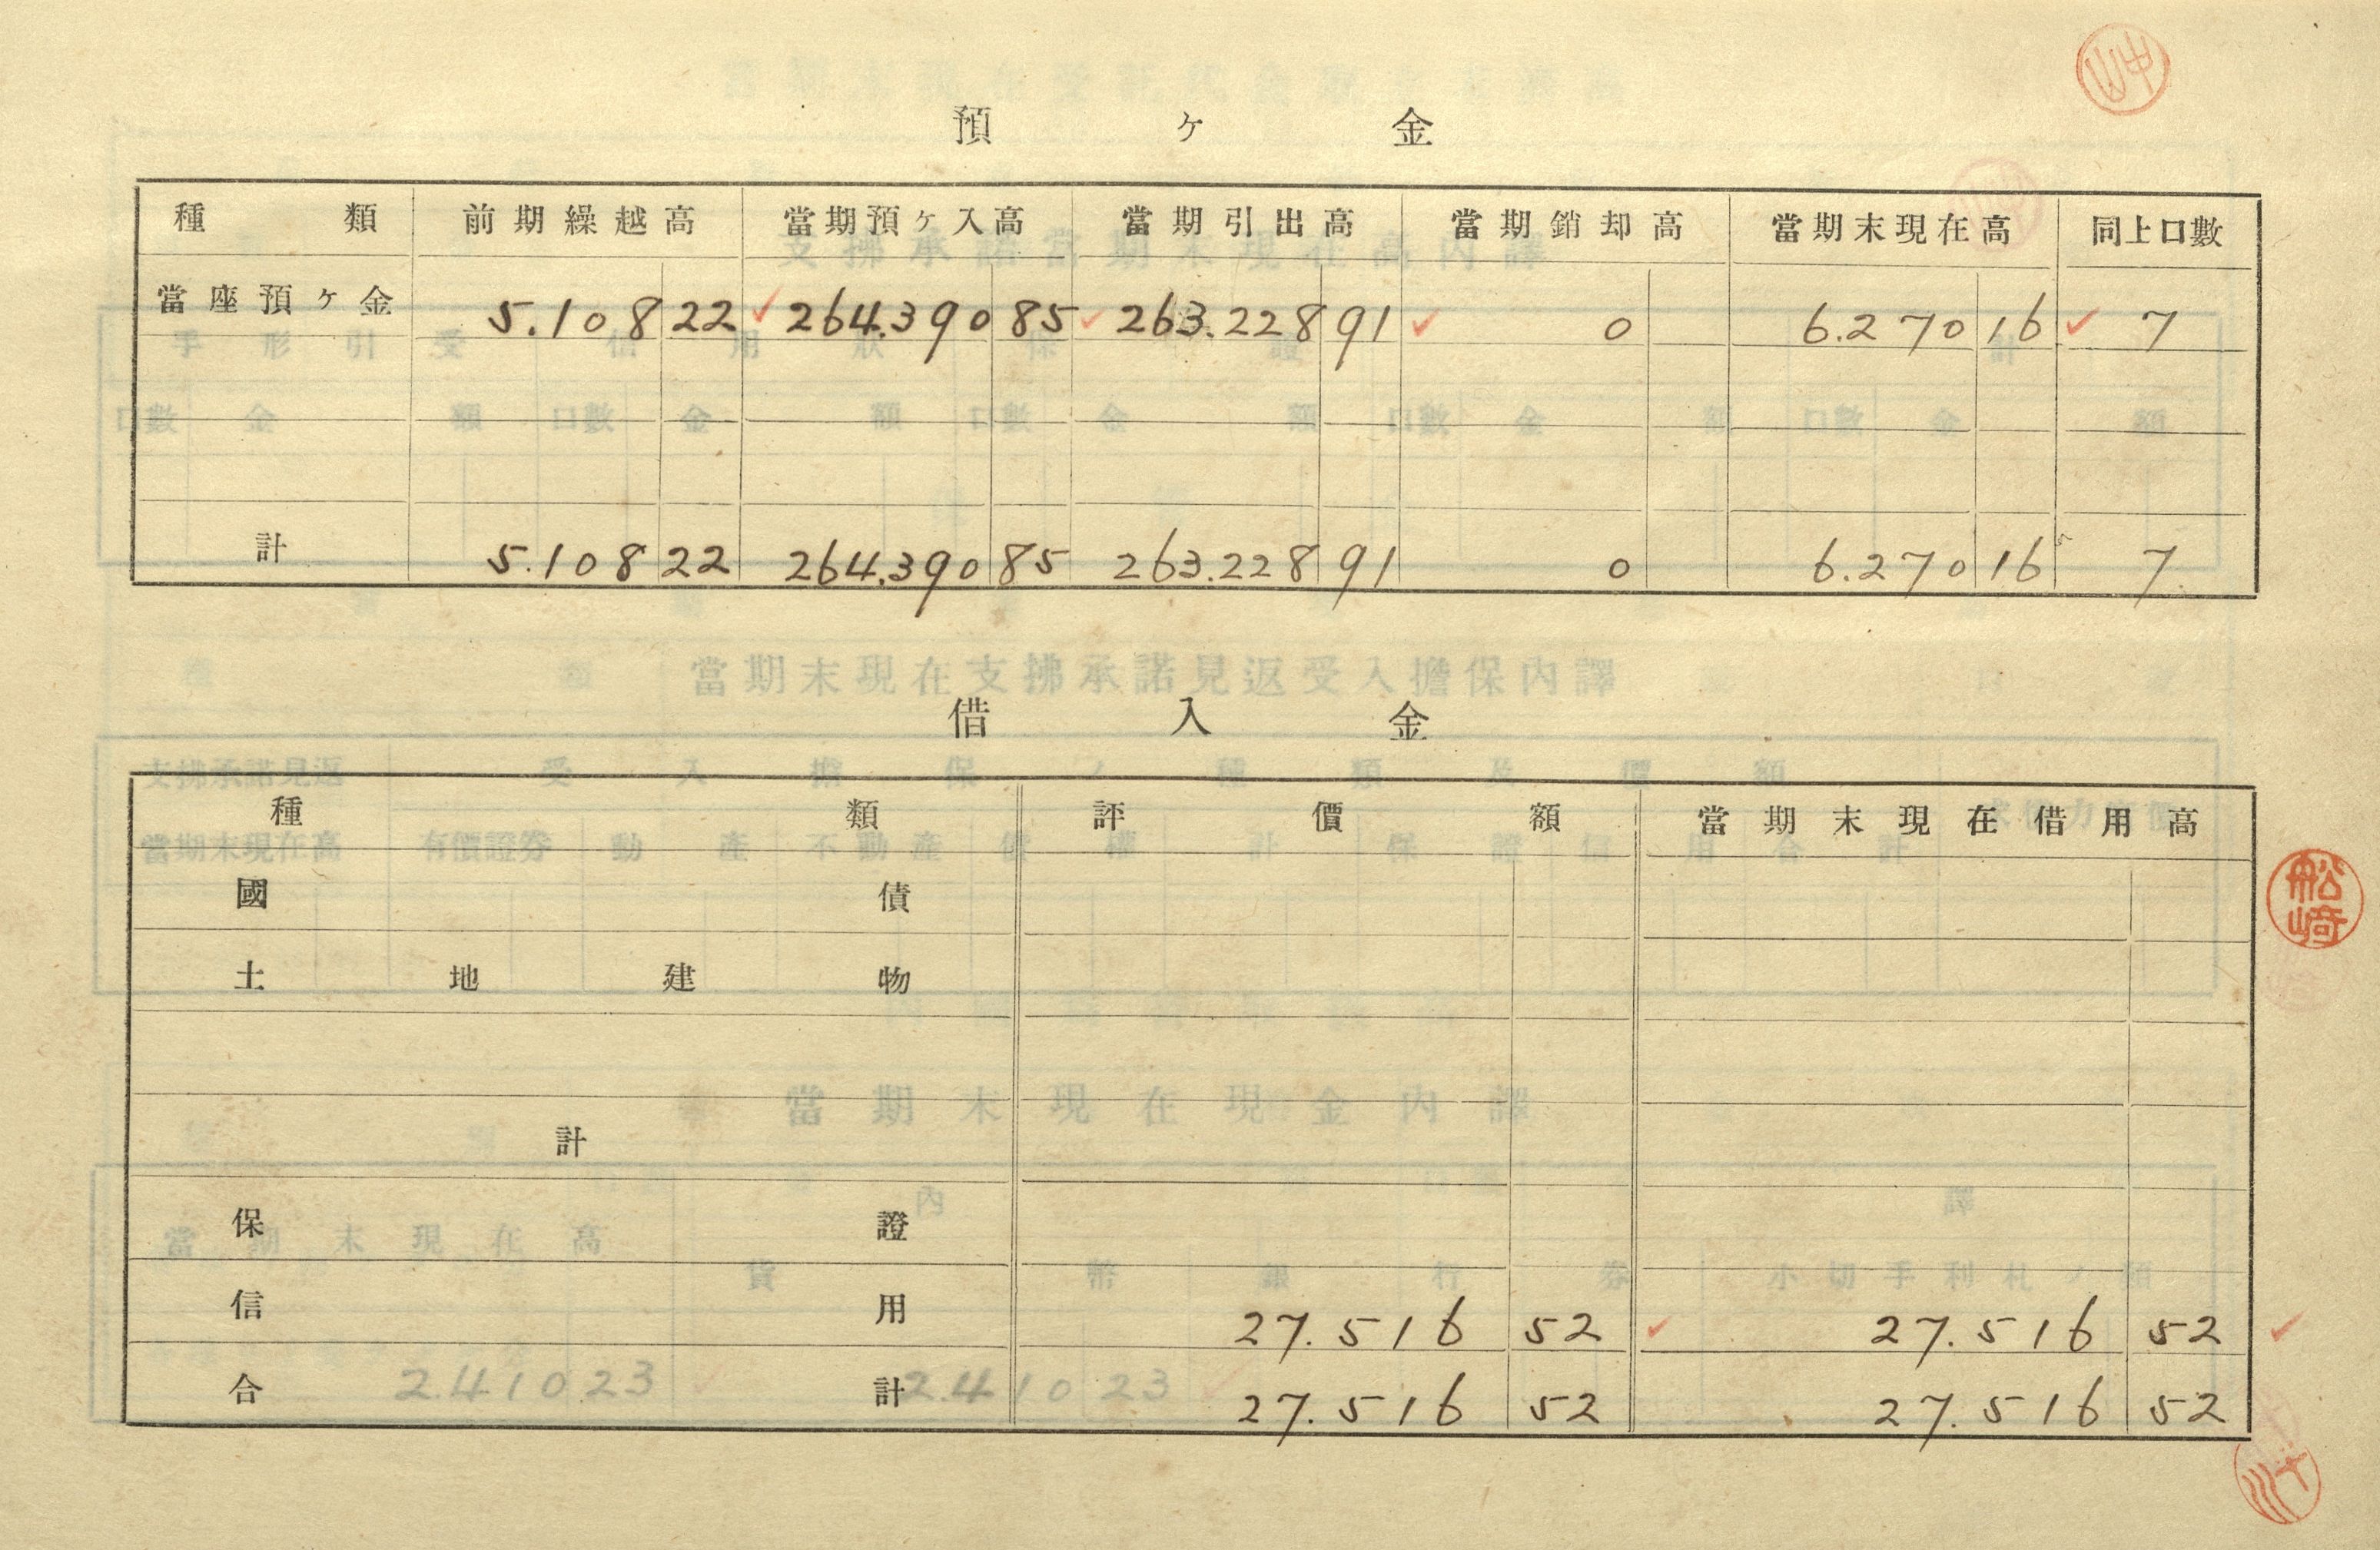 預ヶ金
種類 前期繰越高 當期預ヶ入高 當期引出高 當期銷却高 當期末現在高 同上口數
當座預ヶ金 5.108 22 264.390 85 263.228 91 0 6.270 16 7
計 5.108 22 264.390 85 263.228 91 0 6.270 16 7
借入金
種類 評價額 當期末現在借用高
國債
土地建物
計
保證
信用 27.516 52 27.516 52
合計 27.516 52 27.516 52
船﨑